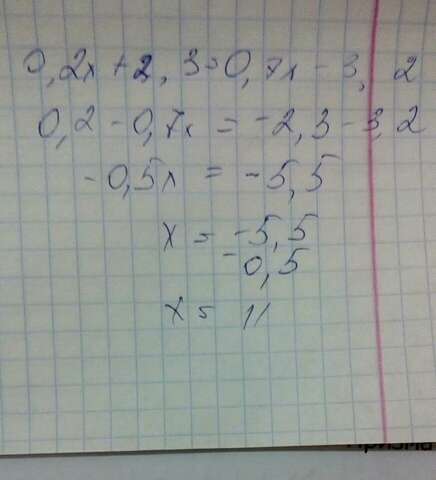 0,2x+2,3=0,7x-3,2
0,2-0,7x=-2,3-3,2
-0,5x=-5,5
x=-5,5
-0,5
x=11
Призма